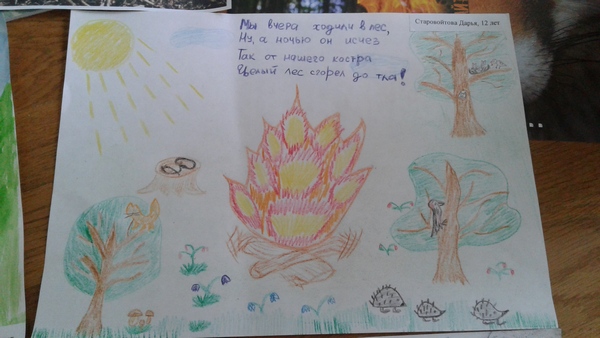 Мы вчера ходили в лес,
Ну, а ночью он исчез
Так от нашего костра
Целый лес сгорел до тла!
Старовойтова Дарья, 12 лет